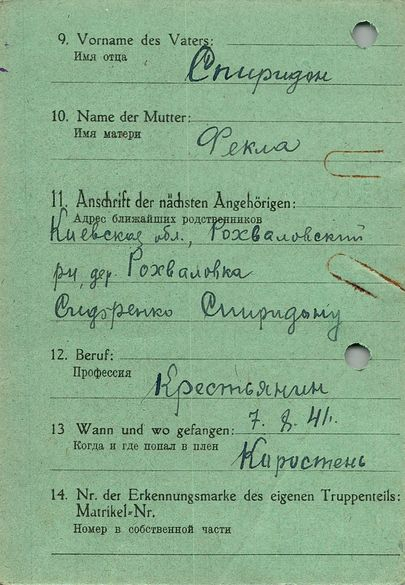 9. Vorname des Vaters:
Имя отца
Спиридон
10. Name der Mutter:
Имя матери
Фекла
11. Anschrift der nächsten Angehörigen:
Адрес ближайших родственников
Киевская обл., Рохваловский
рн, дер. Рохваловка
Сидоренко Спиридону
12. Beruf:
Профессия
Крестьянин
13 Wann und wo gefangen: 7. 8. 41.
Когда и где попал в плен
Каростень
14. Nr. der Erkennungsmarke des eigenen Truppenteils:
Matrikel-Nr.
Номер в собственной части